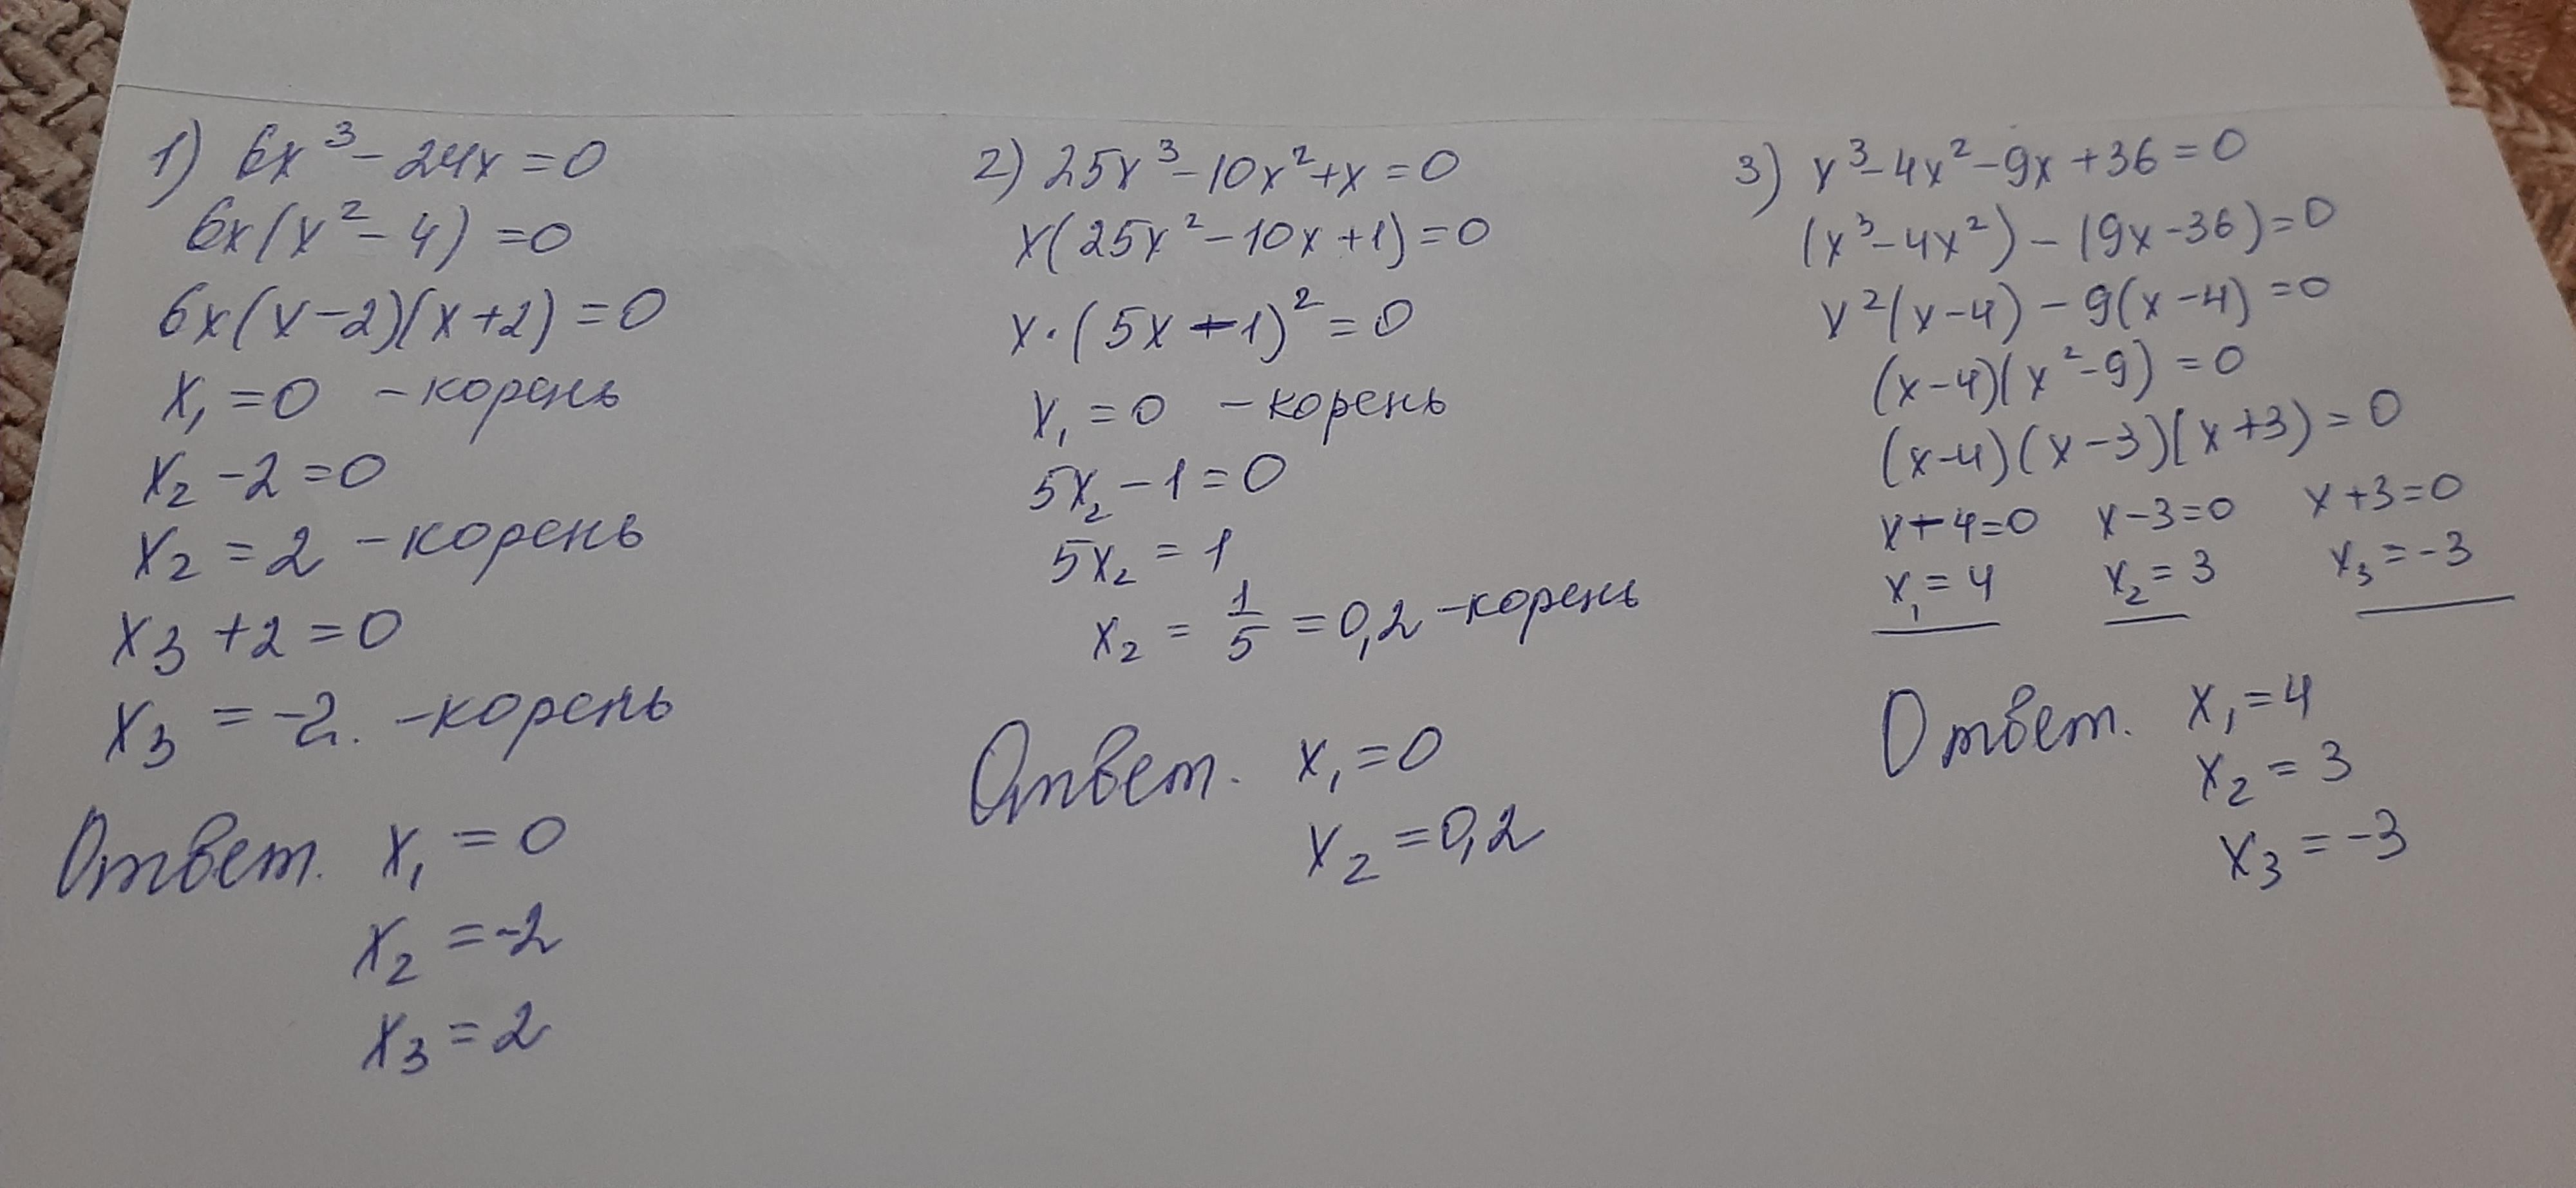 1) 6x³ - 24x = 0
6x(x² - 4) = 0
6x(x - 2)(x + 2) = 0
x₁ = 0 - корень
x₂ - 2 = 0
x₂ = 2 - корень
x₃ + 2 = 0
x₃ = -2. - корень
Ответ. x₁ = 0
x₂ = -2
x₃ = 2
2) 25x³ - 10x² + x = 0
x(25x² - 10x + 1) = 0
x · (5x - 1)² = 0
x₁ = 0 - корень
5x₂ - 1 = 0
5x₂ = 1
x₂ = 1/5 = 0,2 - корень
Ответ. x₁ = 0
x₂ = 0,2
3) x³ - 4x² - 9x + 36 = 0
(x³ - 4x²) - (9x - 36) = 0
x²(x - 4) - 9(x - 4) = 0
(x - 4)(x² - 9) = 0
(x - 4)(x - 3)(x + 3) = 0
x - 4 = 0 x - 3 = 0 x + 3 = 0
x₁ = 4 x₂ = 3 x₃ = -3
Ответ. x₁ = 4
x₂ = 3
x₃ = -3